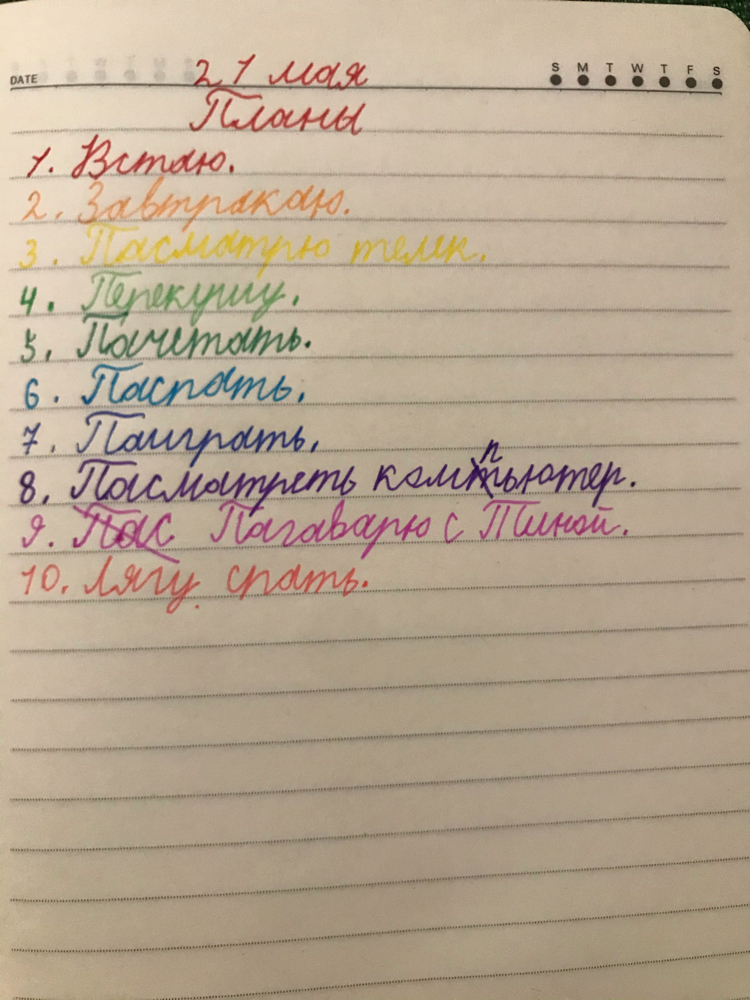 DATE
S M T W T F S
21 мая
Планы
1. Встаю.
2. Завтракаю.
3. Пасматрю телик.
4. Перекушу.
5. Пачетать.
6. Паспать.
7. Паиграть.
8. Пасматреть компьютер.
9. Пас Пагаварю с Тиной.
10. Лягу спать.